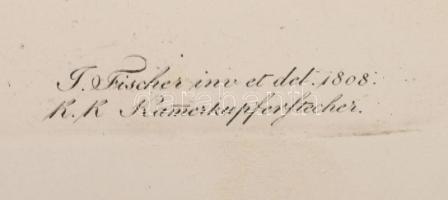 J. Fischer inv et del. 1808.
K. K Kamerkupferstecher.